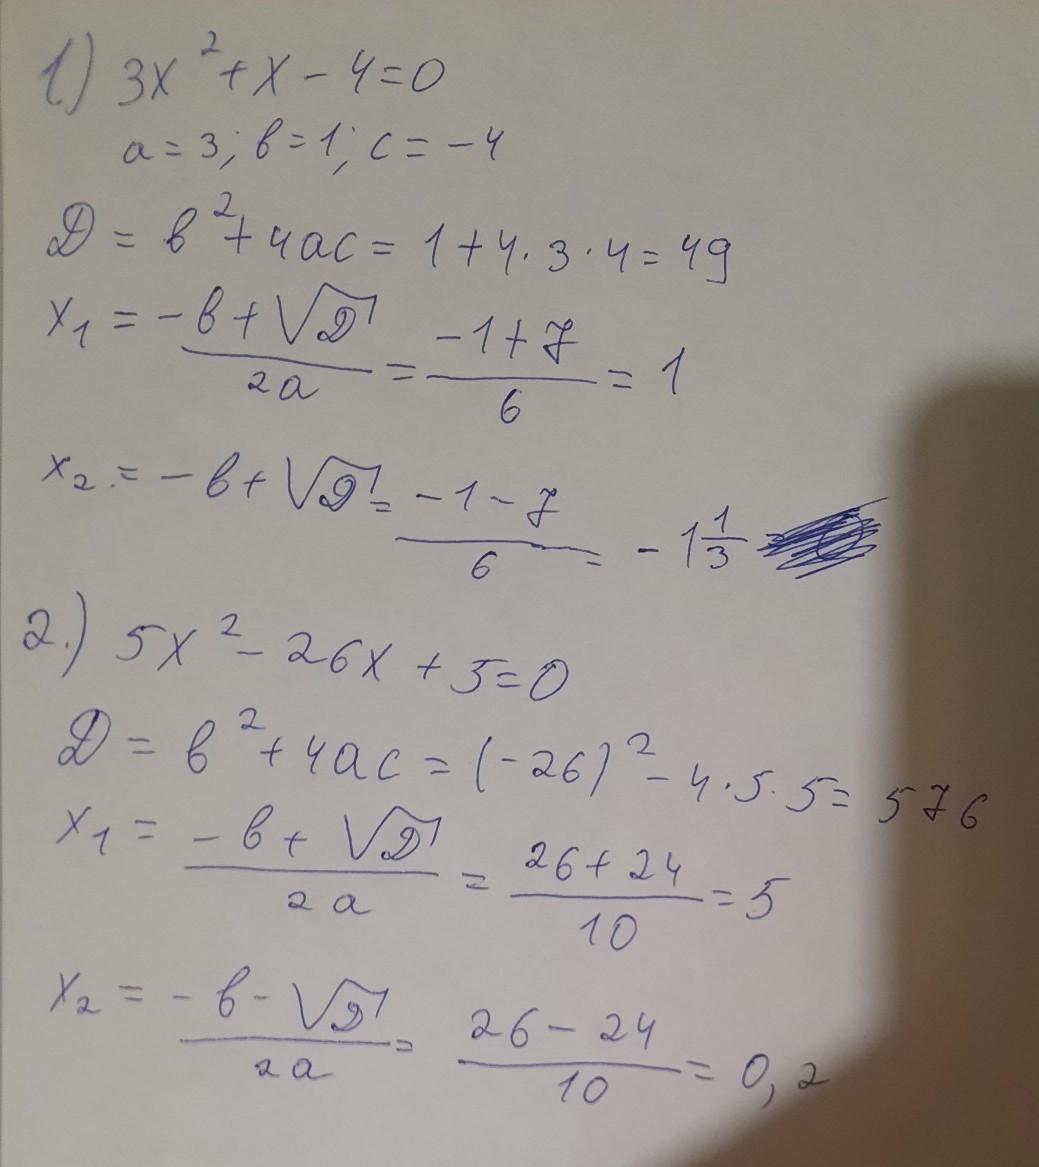 1.) 3x² + x - 4 = 0
a = 3; в = 1; c = -4
D = в² + 4ac = 1 + 4 · 3 · 4 = 49
x₁ = (-в + √D) / 2a = (-1 + 7) / 6 = 1
x₂ = -в + √D = (-1 - 7) / 6 = -1 1/3
2.) 5x² - 26x + 5 = 0
D = в² + 4ac = (-26)² - 4 · 5 · 5 = 576
x₁ = (-в + √D) / 2a = (26 + 24) / 10 = 5
x₂ = (-в - √D) / 2a = (26 - 24) / 10 = 0,2